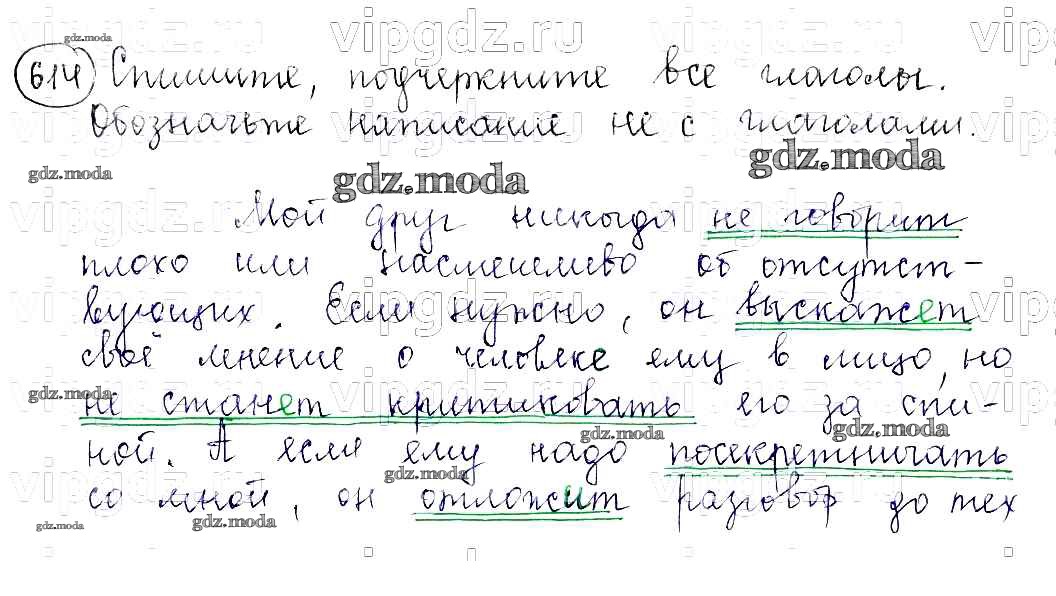 614 Спишите, подчеркните все глаголы.
Обозначьте написание не с глаголами.
Мой друг никогда не говорит
плохо или насмешливо об отсутст-
вующих. Если нужно, он выскажет
своё мнение о человеке ему в лицо, но
не станет критиковать его за спи-
ной. А если ему надо посекретничать
со мной, он отложит разговор до тех